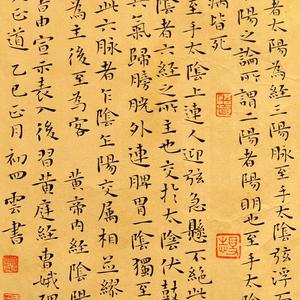 者太陽為經三陽脈至手太陰弦浮
陽之論所謂二陽者陽明也至手太陰
病皆死
至手太陰上連人迎弦急懸不絕此
陰者六經之所主也交於太陰伏鼓
氣歸膀胱外連脾胃一陰獨至
此六脈者乍陰乍陽交屬相並繆
為主後至為客 黃帝內經陰陽
書由宣示表入後習黃庭經曹娥
正道 乙巳正月初四雲書